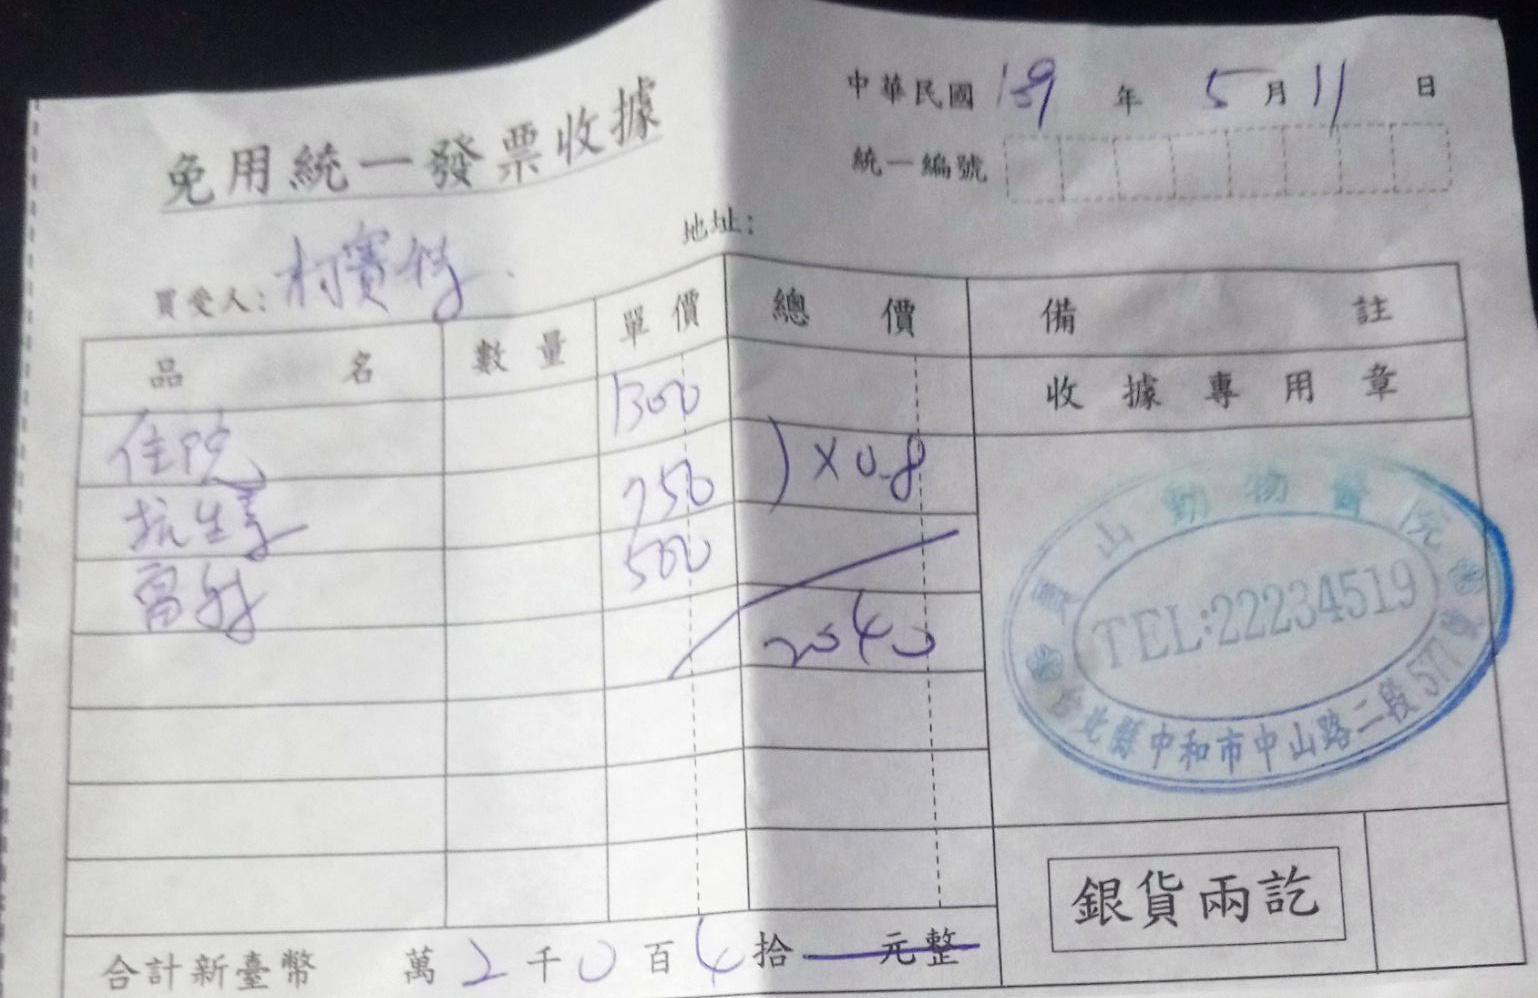 免用統一發票收據
中華民國109年5月11日
統一編號
地址:
買受人: 柯賽特
品名 數量 單價 總價 備註
收據專用章
住院 1300
抗生素 750 ) × 0.8
雷射 500
2040
山動物醫院
TEL:22234519
台北縣中和市中山路二段577號
銀貨兩訖
合計新臺幣 萬2千0百4拾元整